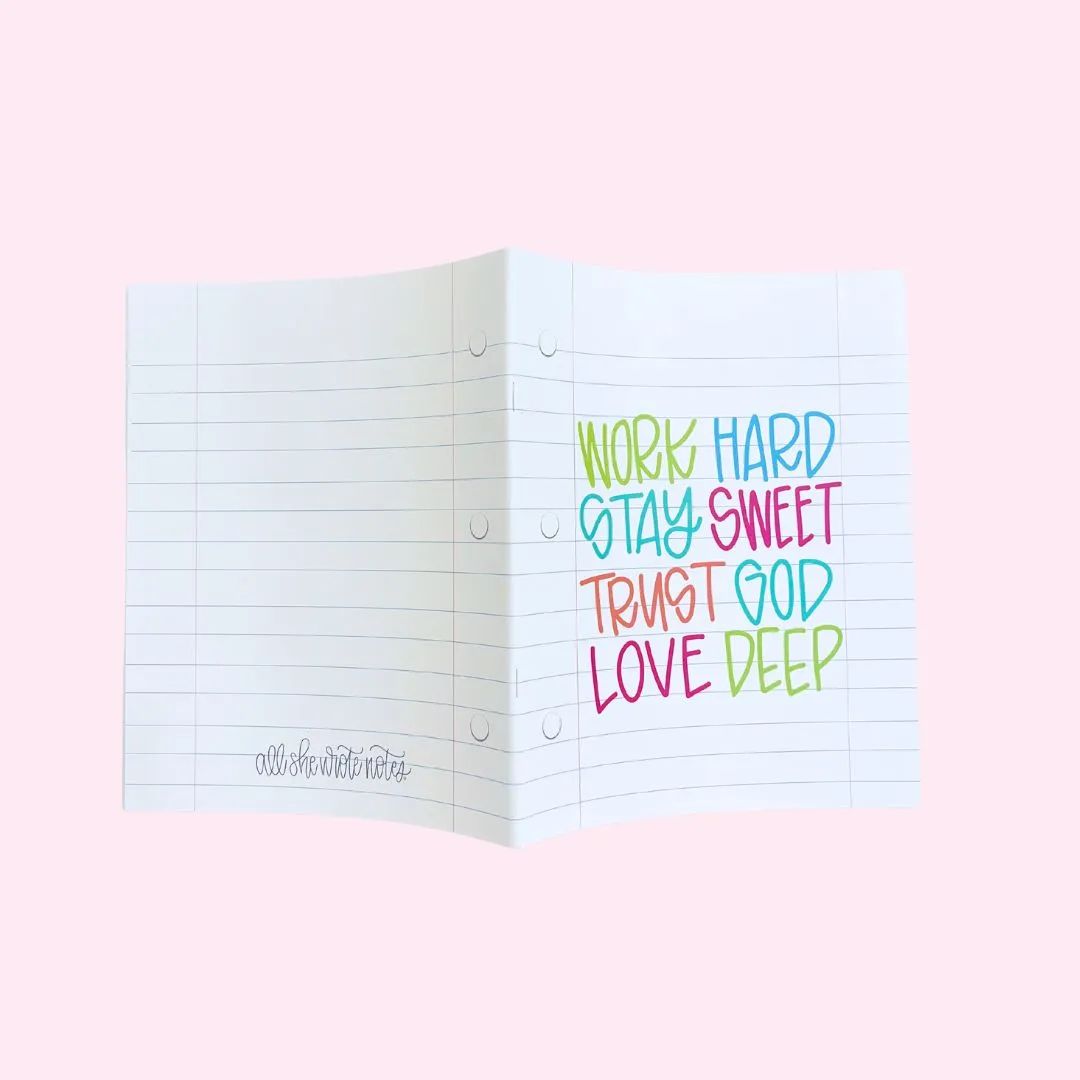 all she wrote notes.
WORK HARD
STAY SWEET
TRUST GOD
LOVE DEEP